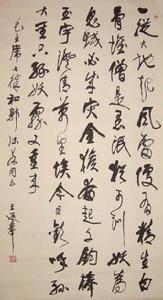 一從大地起風雷便有精生白
骨堆僧是愚氓猶可訓妖為
鬼蜮必成灾金猴奮起千鈞棒
玉宇澄清萬里埃今日歡呼孫
大聖只緣妖霧又重來
毛主席七律和郭沫若同志 王遐舉